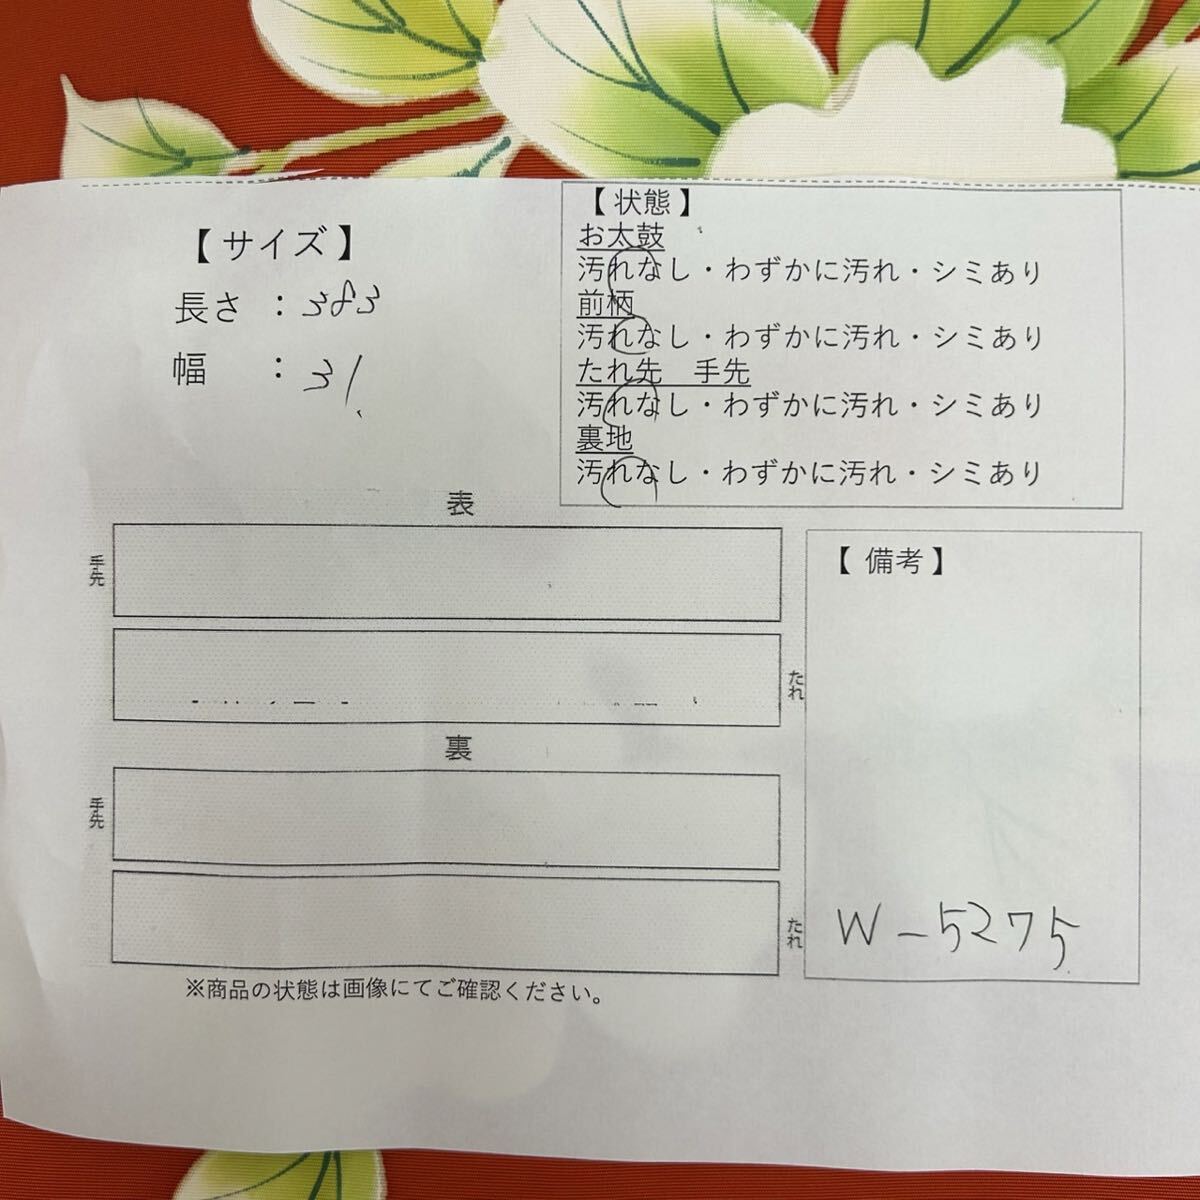 【 サイズ 】
長さ ：383
幅 ：31
【 状態 】
お太鼓
汚れなし・わずかに汚れ・シミあり
前柄
汚れなし・わずかに汚れ・シミあり
たれ先 手先
汚れなし・わずかに汚れ・シミあり
裏地
汚れなし・わずかに汚れ・シミあり
表
手先
たれ
裏
手先
たれ
※商品の状態は画像にてご確認ください。
【 備考 】
W-5275